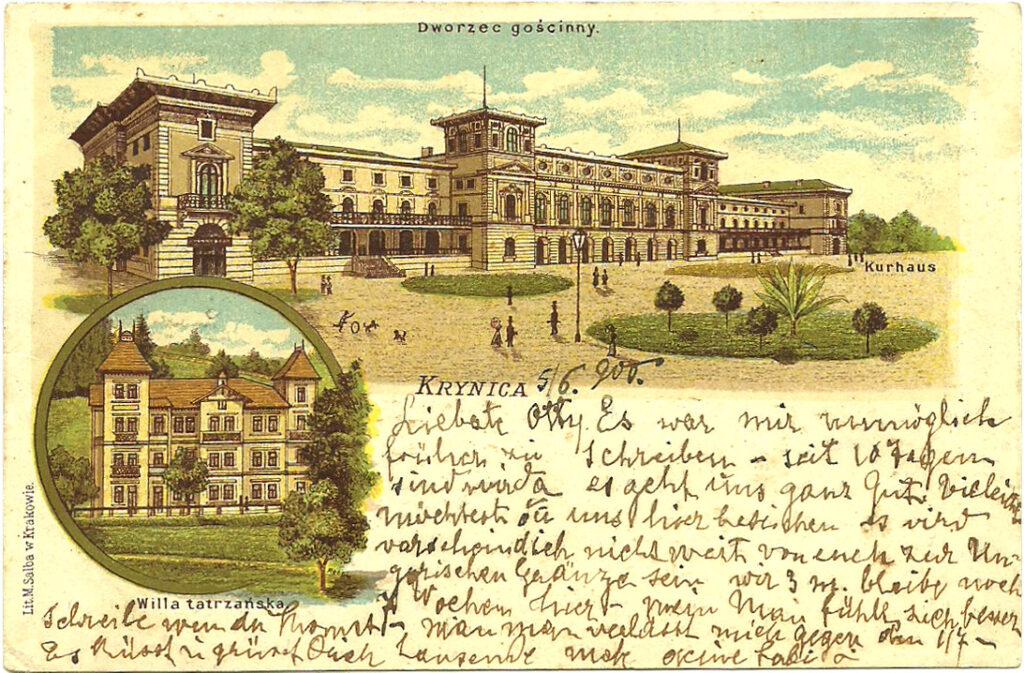 Dworzec gościnny.
Kurhaus
KRYNICA 5/6. 900.
Liebste Otty. Es war mir unmöglich
früher zu Schreiben – seit 10 Tagen
sind wir da es geht uns ganz Gut. Vieleicht
möchtest du uns hier besuchen es wird
warscheindlich nicht weit von euch zur Un-
garischen Gränze sein wir 3 bleibe noch
Wochen hier – mein Man fühlt sich besser
Schreibe wen du komst – mein man verlässt mich gegen den 1/7 –
Es Küsst u grüsst Euch tausende mal deine
Willa tatrzańska
Lit. M. Salba w Krakowie.